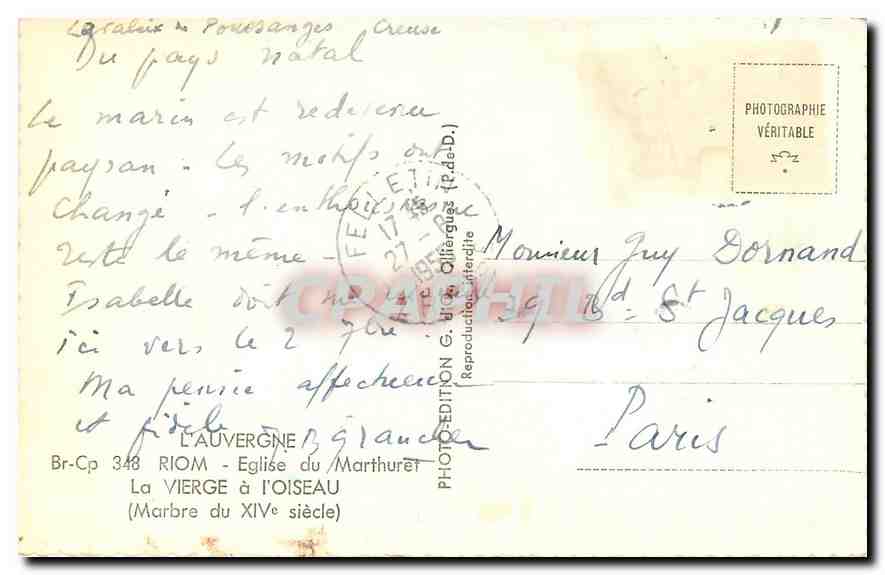 Poussanges Creuse
Du pays natal
Le marin est redevenu
paysan - Les motifs ont
changé - l'enthousiasme
reste le même -
Isabelle doit
ici vers le 2 7bre
Ma pensée affectueuse
et fidèle
L'AUVERGNE
Br-Cp 348 RIOM - Eglise du Marthuret
La VIERGE à l'OISEAU
(Marbre du XIVe siècle)
PHOTO-EDITION G. d'O., Olliergues (P.-de-D.)
Reproduction interdite
FELLETIN
17
27 - 8
CPAPHIL
PHOTOGRAPHIE
VÉRITABLE
Monsieur Guy Dornand
39 Bd St Jacques
Paris